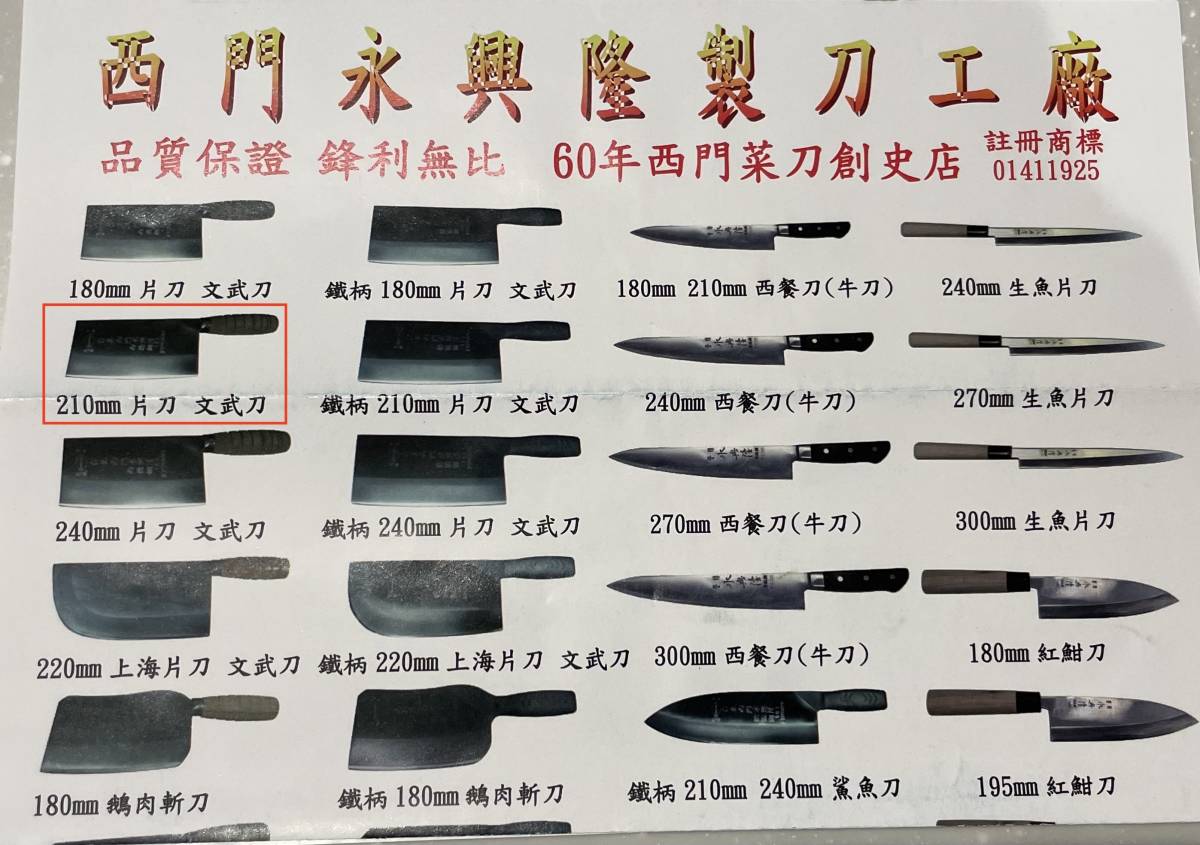 西門永興隆製刀工廠
品質保證 鋒利無比 60年西門菜刀創史店 註冊商標
01411925
180mm 片刀 文武刀 鐵柄 180mm 片刀 文武刀 180mm 210mm 西餐刀(牛刀) 240mm 生魚片刀
210mm 片刀 文武刀 鐵柄 210mm 片刀 文武刀 240mm 西餐刀(牛刀) 270mm 生魚片刀
240mm 片刀 文武刀 鐵柄 240mm 片刀 文武刀 270mm 西餐刀(牛刀) 300mm 生魚片刀
220mm 上海片刀 文武刀 鐵柄 220mm 上海片刀 文武刀 300mm 西餐刀(牛刀) 180mm 紅魽刀
180mm 鵝肉斬刀 鐵柄 180mm 鵝肉斬刀 鐵柄 210mm 240mm 鯊魚刀 195mm 紅魽刀